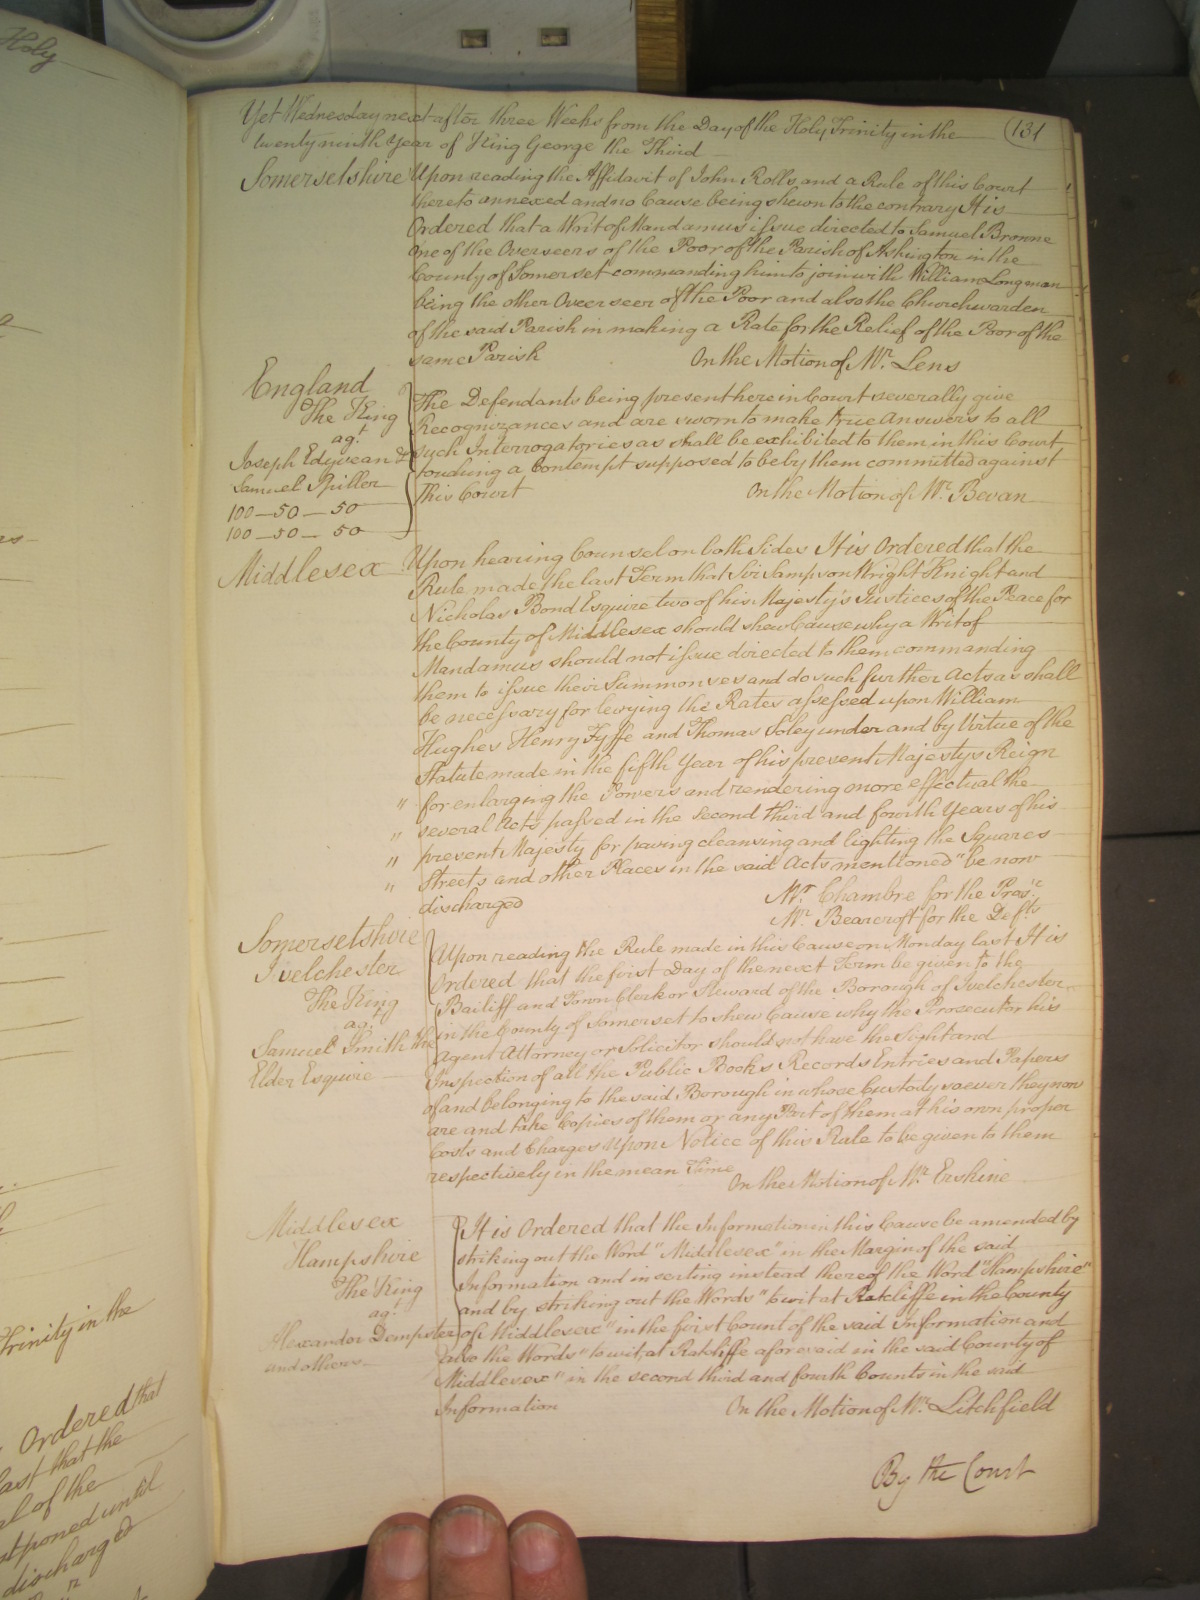 Holy
Yet Wednesday next after three Weeks from the Day of the Holy Trinity in the
(131
twenty ninth Year of King George the Third
Somersetshire Upon reading the Affidavit of John Rolls and a Rule of this Court
hereto annexed and no Cause being shewn to the contrary It is
Ordered that a Writ of Mandamus issue directed to Samuel Browne
One of the Overseers of the Poor of the Parish of Ashington in the
County of Somerset commanding him to join with William Longman
being the other Overseer of the Poor and also the Churchwarden
of the said Parish in making a Rate for the Relief of the Poor of the
same Parish On the Motion of Mr. Lens
England
The King
agt.
Joseph Edyvean &
Samuel Spiller
100 — 50 — 50
100 — 50 — 50
The Defendants being present here in Court severally give
Recognizances and are sworn to make true Answers to all
such Interrogatories as shall be exhibited to them in this Court
touching a Contempt supposed to be by them committed against
this Court On the Motion of Mr. Bevan
Middlesex Upon hearing Counsel on both Sides It is Ordered that the
Rule made the last Term that Sir Sampson Wright Knight and
Nicholas Bond Esquire two of his Majesty's Justices of the Peace for
the County of Middlesex should shew Cause why a Writ of
Mandamus should not issue directed to them commanding
them to issue their Summonses and do such further Acts as shall
be necessary for levying the Rates assessed upon William
Hughes Henry Fyffe and Thomas Soley under and by Virtue of the
Statute made in the fifth Year of his present Majesty's Reign
" for enlarging the Powers and rendering more effectual the
" several Acts passed in the second third and fourth Years of his
" present Majesty for paving cleansing and lighting the Squares
" Streets and other Places in the said Acts mentioned" be now
discharged Mr. Chambre for the Pros.r
Mr. Bearcroft for the Defts
Somersetshire
Ivelchester
The King
agt.
Samuel Smith the
Elder Esquire
Upon reading the Rule made in this Cause on Monday last It is
Ordered that the first Day of the next Term be given to the
Bailiff and Town Clerk or Steward of the Borough of Ivelchester
in the County of Somerset to shew Cause why the Prosecutor his
Agent Attorney or Solicitor should not have the Sight and
Inspection of all the Public Books Records Entries and Papers
of and belonging to the said Borough in whose Custody soever they now
are and take Copies of them or any Part of them at his own proper
Costs and Charges Upon Notice of this Rule to be given to them
respectively in the mean Time On the Motion of Mr. Erskine
Middlesex
Hampshire
The King
agt.
Alexander Dempster
and others
It is Ordered that the Information in this Cause be amended by
striking out the Word "Middlesex" in the Margin of the said
Information and inserting instead thereof the Word "Hampshire"
and by striking out the Words "to wit at Ratcliffe in the County
of Middlesex" in the first Count of the said Information and
also the Words "to wit, at Ratcliffe aforesaid in the said County of
Middlesex" in the second third and fourth Counts in the said
Information On the Motion of Mr. Litchfield
By the Court
Trinity in the
Ordered that
last that the
al of the
stponed until
discharged